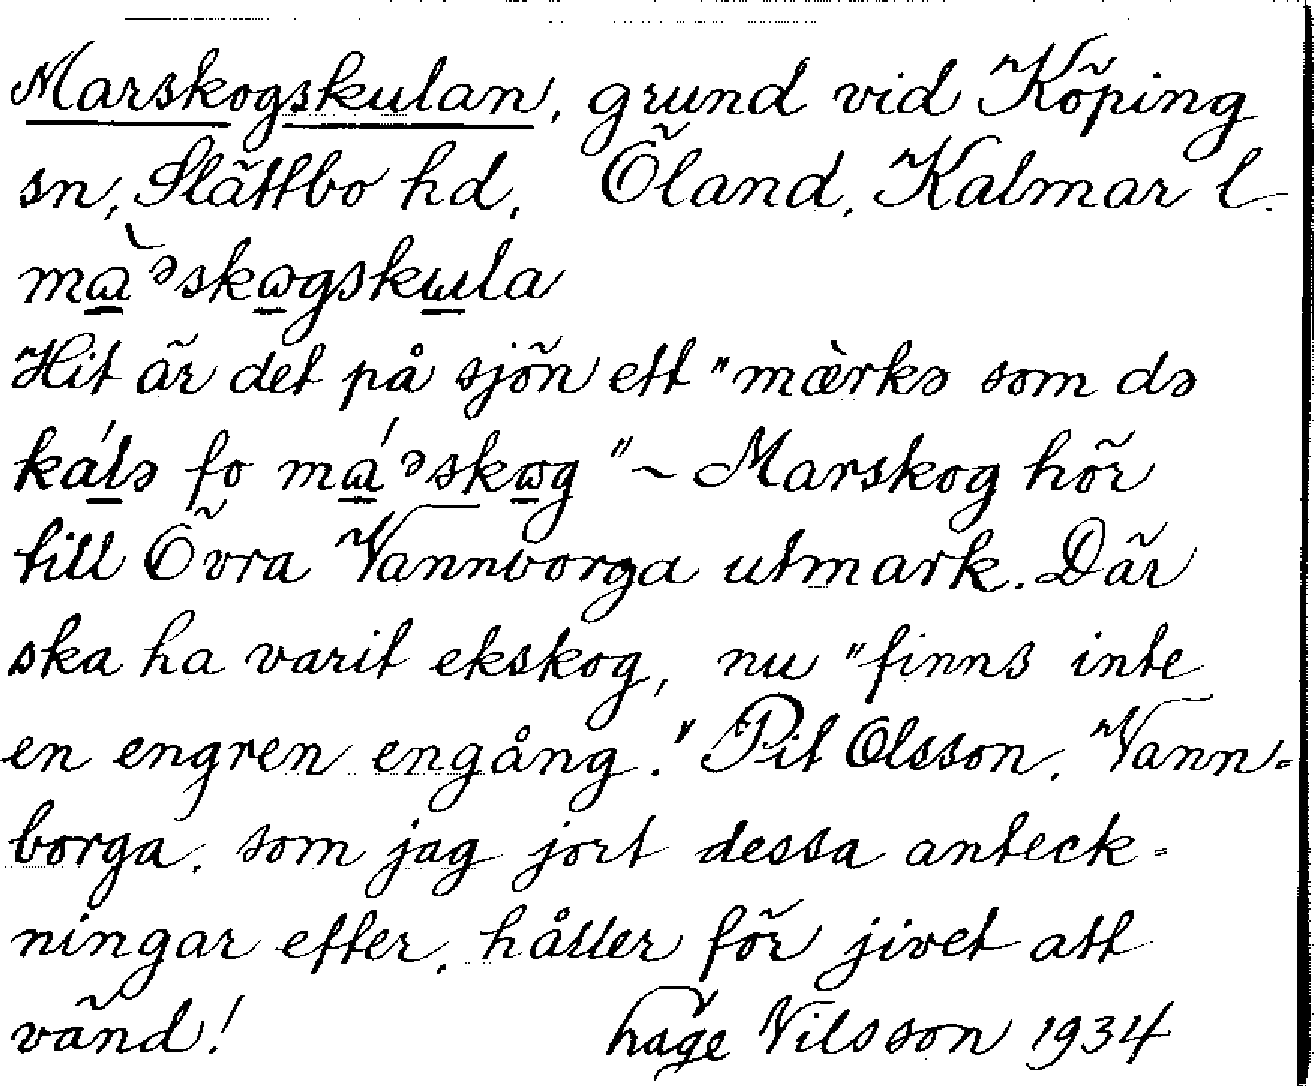 Marskogskulan, grund vid Köping
sn, Slättbo hd, Öland, Kalmar l.
mɷ̀ᵊskɷgskɯla
Hit är det på sjön ett "mæ̀rkə som də
ka̲ĺə fo mɷ́ᵊskɷg" ~ Marskog hör
till Övra Vannborga utmark. Där
ska ha varit ekskog, nu "finns inte
en engren engång." Pit Olsson, Vann-
borga, som jag jort dessa anteck-
ningar efter, håller för jivet att
vänd! Nilsson 1934